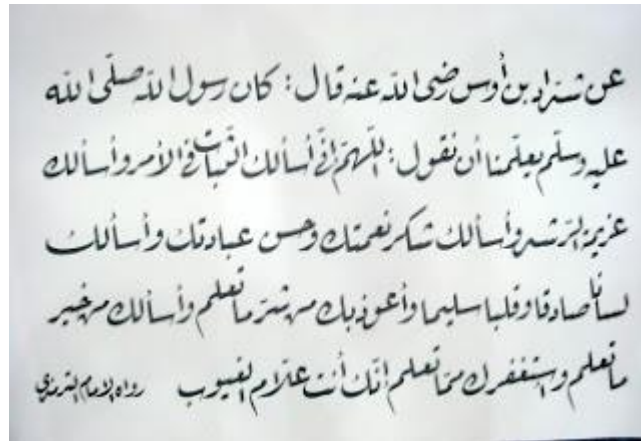 عن شداد بن أوس رضى الله عنه قال: كان رسول الله صلّى الله
عليه وسلّم يعلّمنا أن نقول: اللّهمّ إنّي أسألك الثّبات في الأمر وأسألك
عزيمة الرّشد وأسألك شكر نعمتك وحسن عبادتك وأسألك
لسانا صادقا وقلبا سليما وأعوذ بك من شرّ ما تعلم وأسألك من خير
ما تعلم وأستغفرك ممّا تعلم إنّك أنت علّام الغيوب رواه الإمام الترمذي